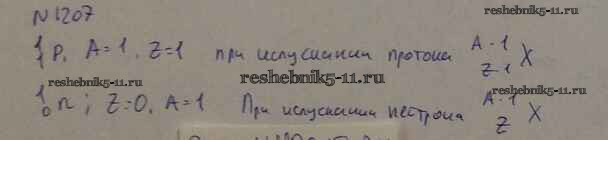 N1207
reshebnik5-11.ru
¹₁P, A=1, Z=1 при испускании протона ᴬ⁻¹Z-1 X
reshebnik5-11.ru
reshebnik5-11.ru
¹₀n; Z=0, A=1 При испускании нейтрона ᴬ⁻¹Z X
reshebnik5-11.ru